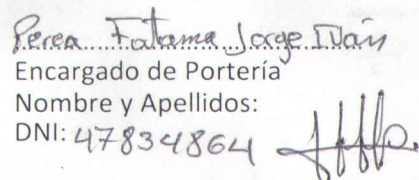 Perea Fatama Jorge Iván
Encargado de Portería
Nombre y Apellidos:
DNI: 47834864